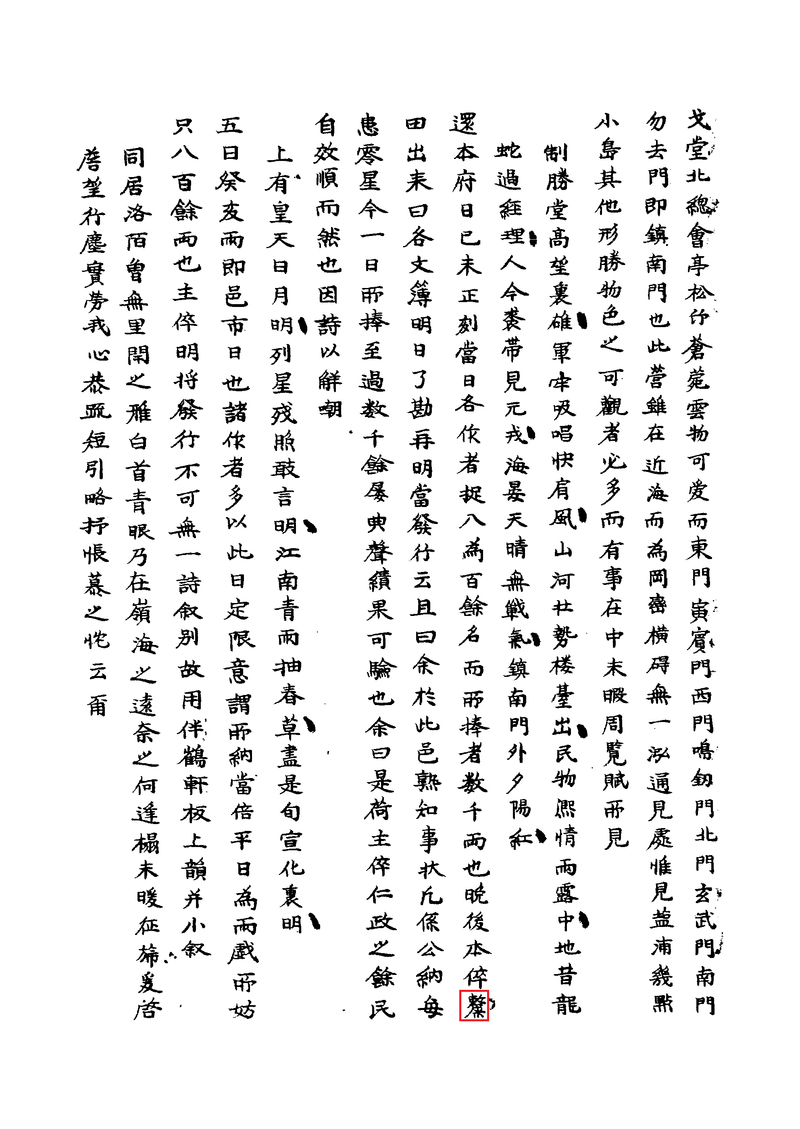 戈堂北總會亭松竹蒼菀雲物可爱而東門寅賓門西門鳴釰門北門玄武門南門
勿去門即鎮南門也此营雖在近海而為岡巒横碍無一泓通見處惟見盐浦幾點
小島其他形勝物色之可觀者必多而有事在中未暇周覧賦所見
制勝堂髙埜裏雄軍牢吸唱快肩風山河壮勢楼䑓出民物凞情雨露中地昔龍
蛇過経理人今裘帯見元戎海晏天晴無戦氣鎮南門外夕陽紅
還本府日已未正刻當日各作者捉八為百餘名而所捧者数千両也晩後本倅
田出来曰各文簿明日了勘再明當發行云且曰余於此邑熟知事状凡係公納每
患零星今一日所捧至過数千餘屡典聲績果可驗也余曰是荷主倅仁政之餘民
自效順而然也因詩以解嘲
上有皇天日月明列星残照敢言明江南青雨抽春草盡是旬宣化裏明
五日癸亥雨即邑市日也諸作者多以此日定限意謂所納當倍平日為雨戱所妨
只八百餘両也主倅明将發行不可無一詩叙别故用伴鶴軒板上韻并小叙
同居洛陌曾無里閈之雅白首青眼乃在嶺海之遠奈之何逢榻未暖征旆爰啓
埜行塵實勞我心恭疏短引略抒悵慕之忱云爾